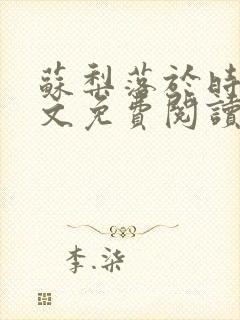 蘇梨落於時
文免費閱讀
李.柒